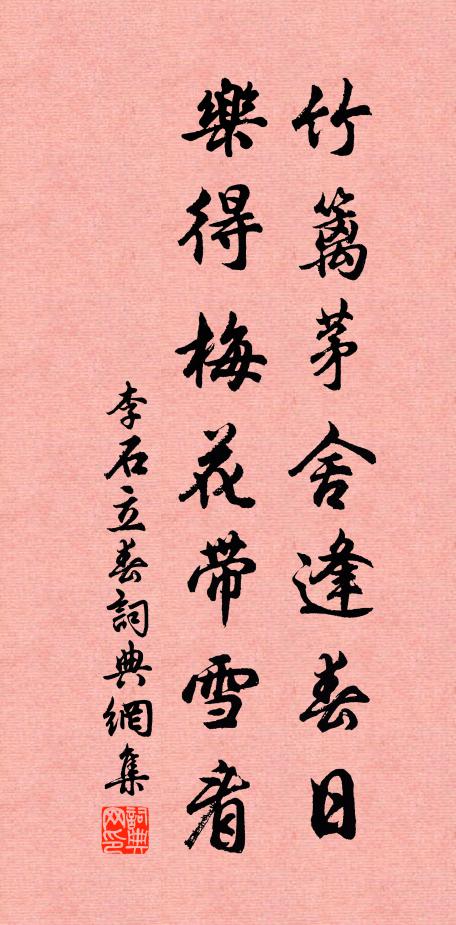 竹籬茅舍逢春日
樂得梅花带雪看
李石立春詞典網集
詞典网印